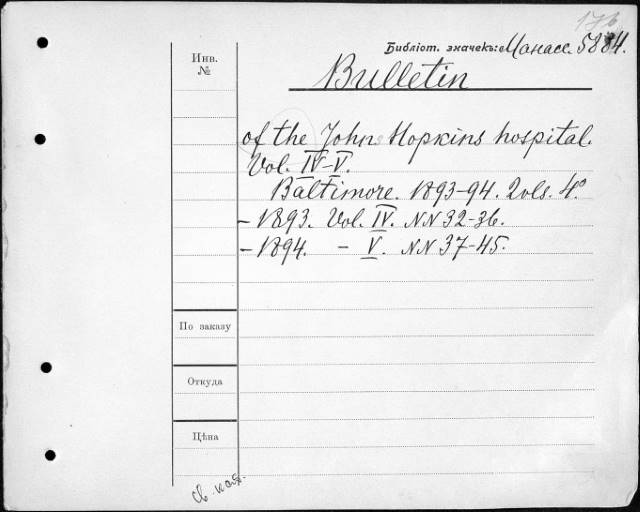 176
Библіот. значекъ: Манасс. 5884.
Инв.
№
Bulletin
of the Johns Hopkins hospital.
Vol. IV-V.
Baltimore. 1893-94. 2 vols. 4°
- 1893. Vol. IV. NN 32-36.
- 1894. - V. NN 37-45.
По заказу
Откуда
Цѣна